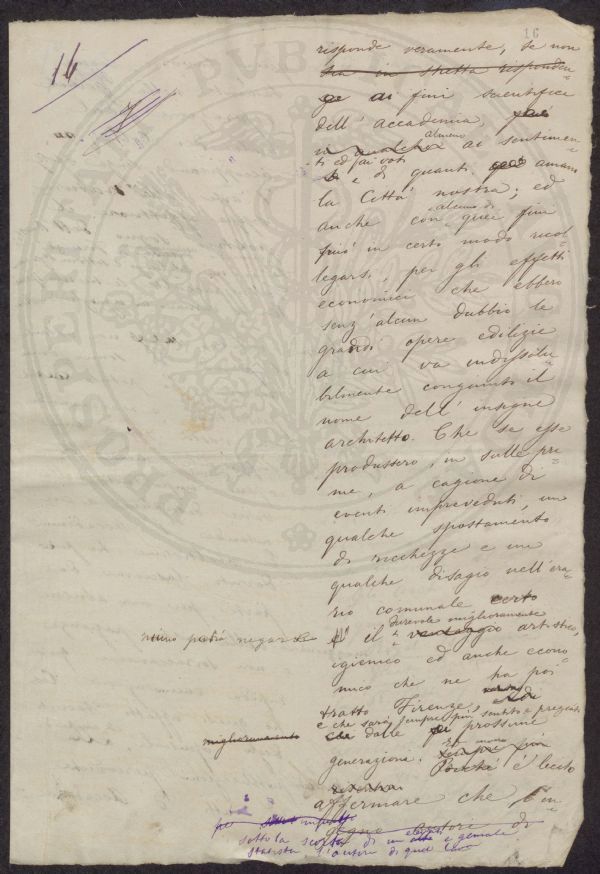 16
16
risponde veramente, se non
sia in stretta risponden=
ge ai fini scientifici
dell' accademia, può
in qualche almeno ai sentimen=
ti ed ai voti
e di quanti amano
la Città nostra; ed
anche con alcuno di quei fini
può in certo modo ricol=
legarsi, per gli effetti
economici che ebbero
senz'alcun dubbio le
grandi opere edilizie
a cui va indissolu=
bilmente congiunto il
nome dell' insigne
architetto. Che se esse
produssero, in sulle pri=
me, a cagione di
eventi impreveduti, un
qualche spostamento
di ricchezze e un
qualche disagio nell'era=
rio comunale certo
niuno potrà negare
il durevole miglioramento
vantaggio artistico,
igienico ed anche econo=
mico che ne ha poi
tratto Firenze,
e che sarà sempre più sentito e pregiato
miglioramento
che dalle prossime
generazioni. sempre più
Poiché è lecito
affermare che l'in=
gegne
per impulso
sotto la scorta di un alto e geniale
statista, l'autore di quel